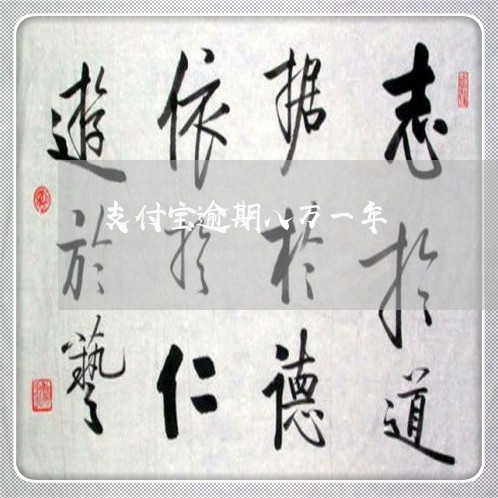 志於道
据於德
依於仁
遊於藝
支付宝逾期八万一年